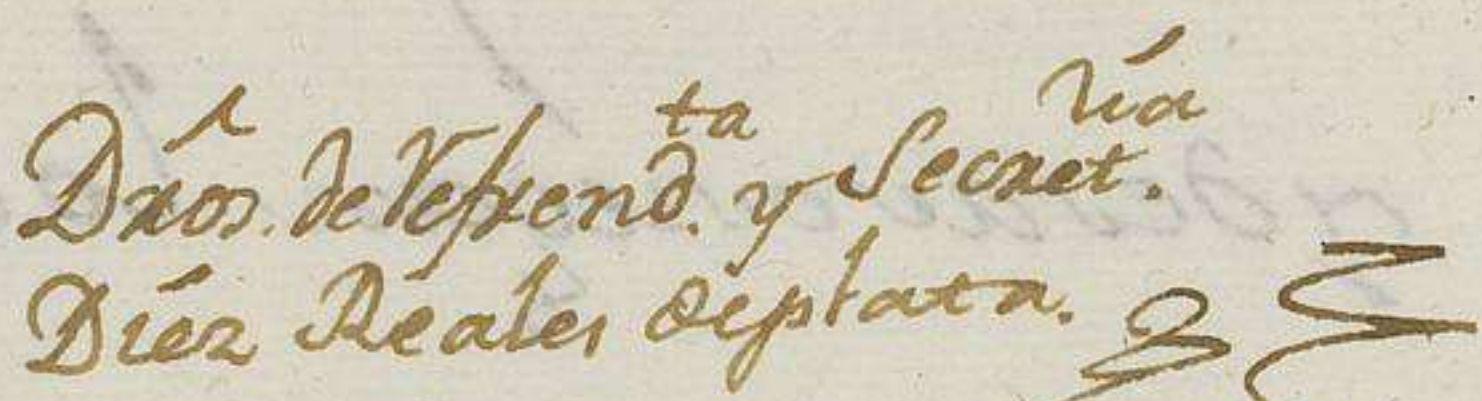 Dros. de Refrend.ta y Secret.ría
Diéz Reales de plata.